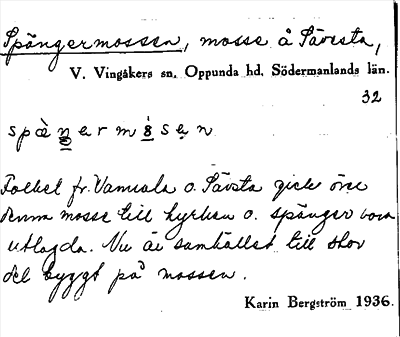 Spångermossen, mosse å Sävsta,
V. Vingåkers sn. Oppunda hd. Södermanlands län.
32
spàŋermósen
Folket fr. Vannala o. Sävsta gick över
denna mosse till kyrkan o. spänger voro
utlagda. Nu är samhället till stor
del byggt på mossen.
Karin Bergström 1936.